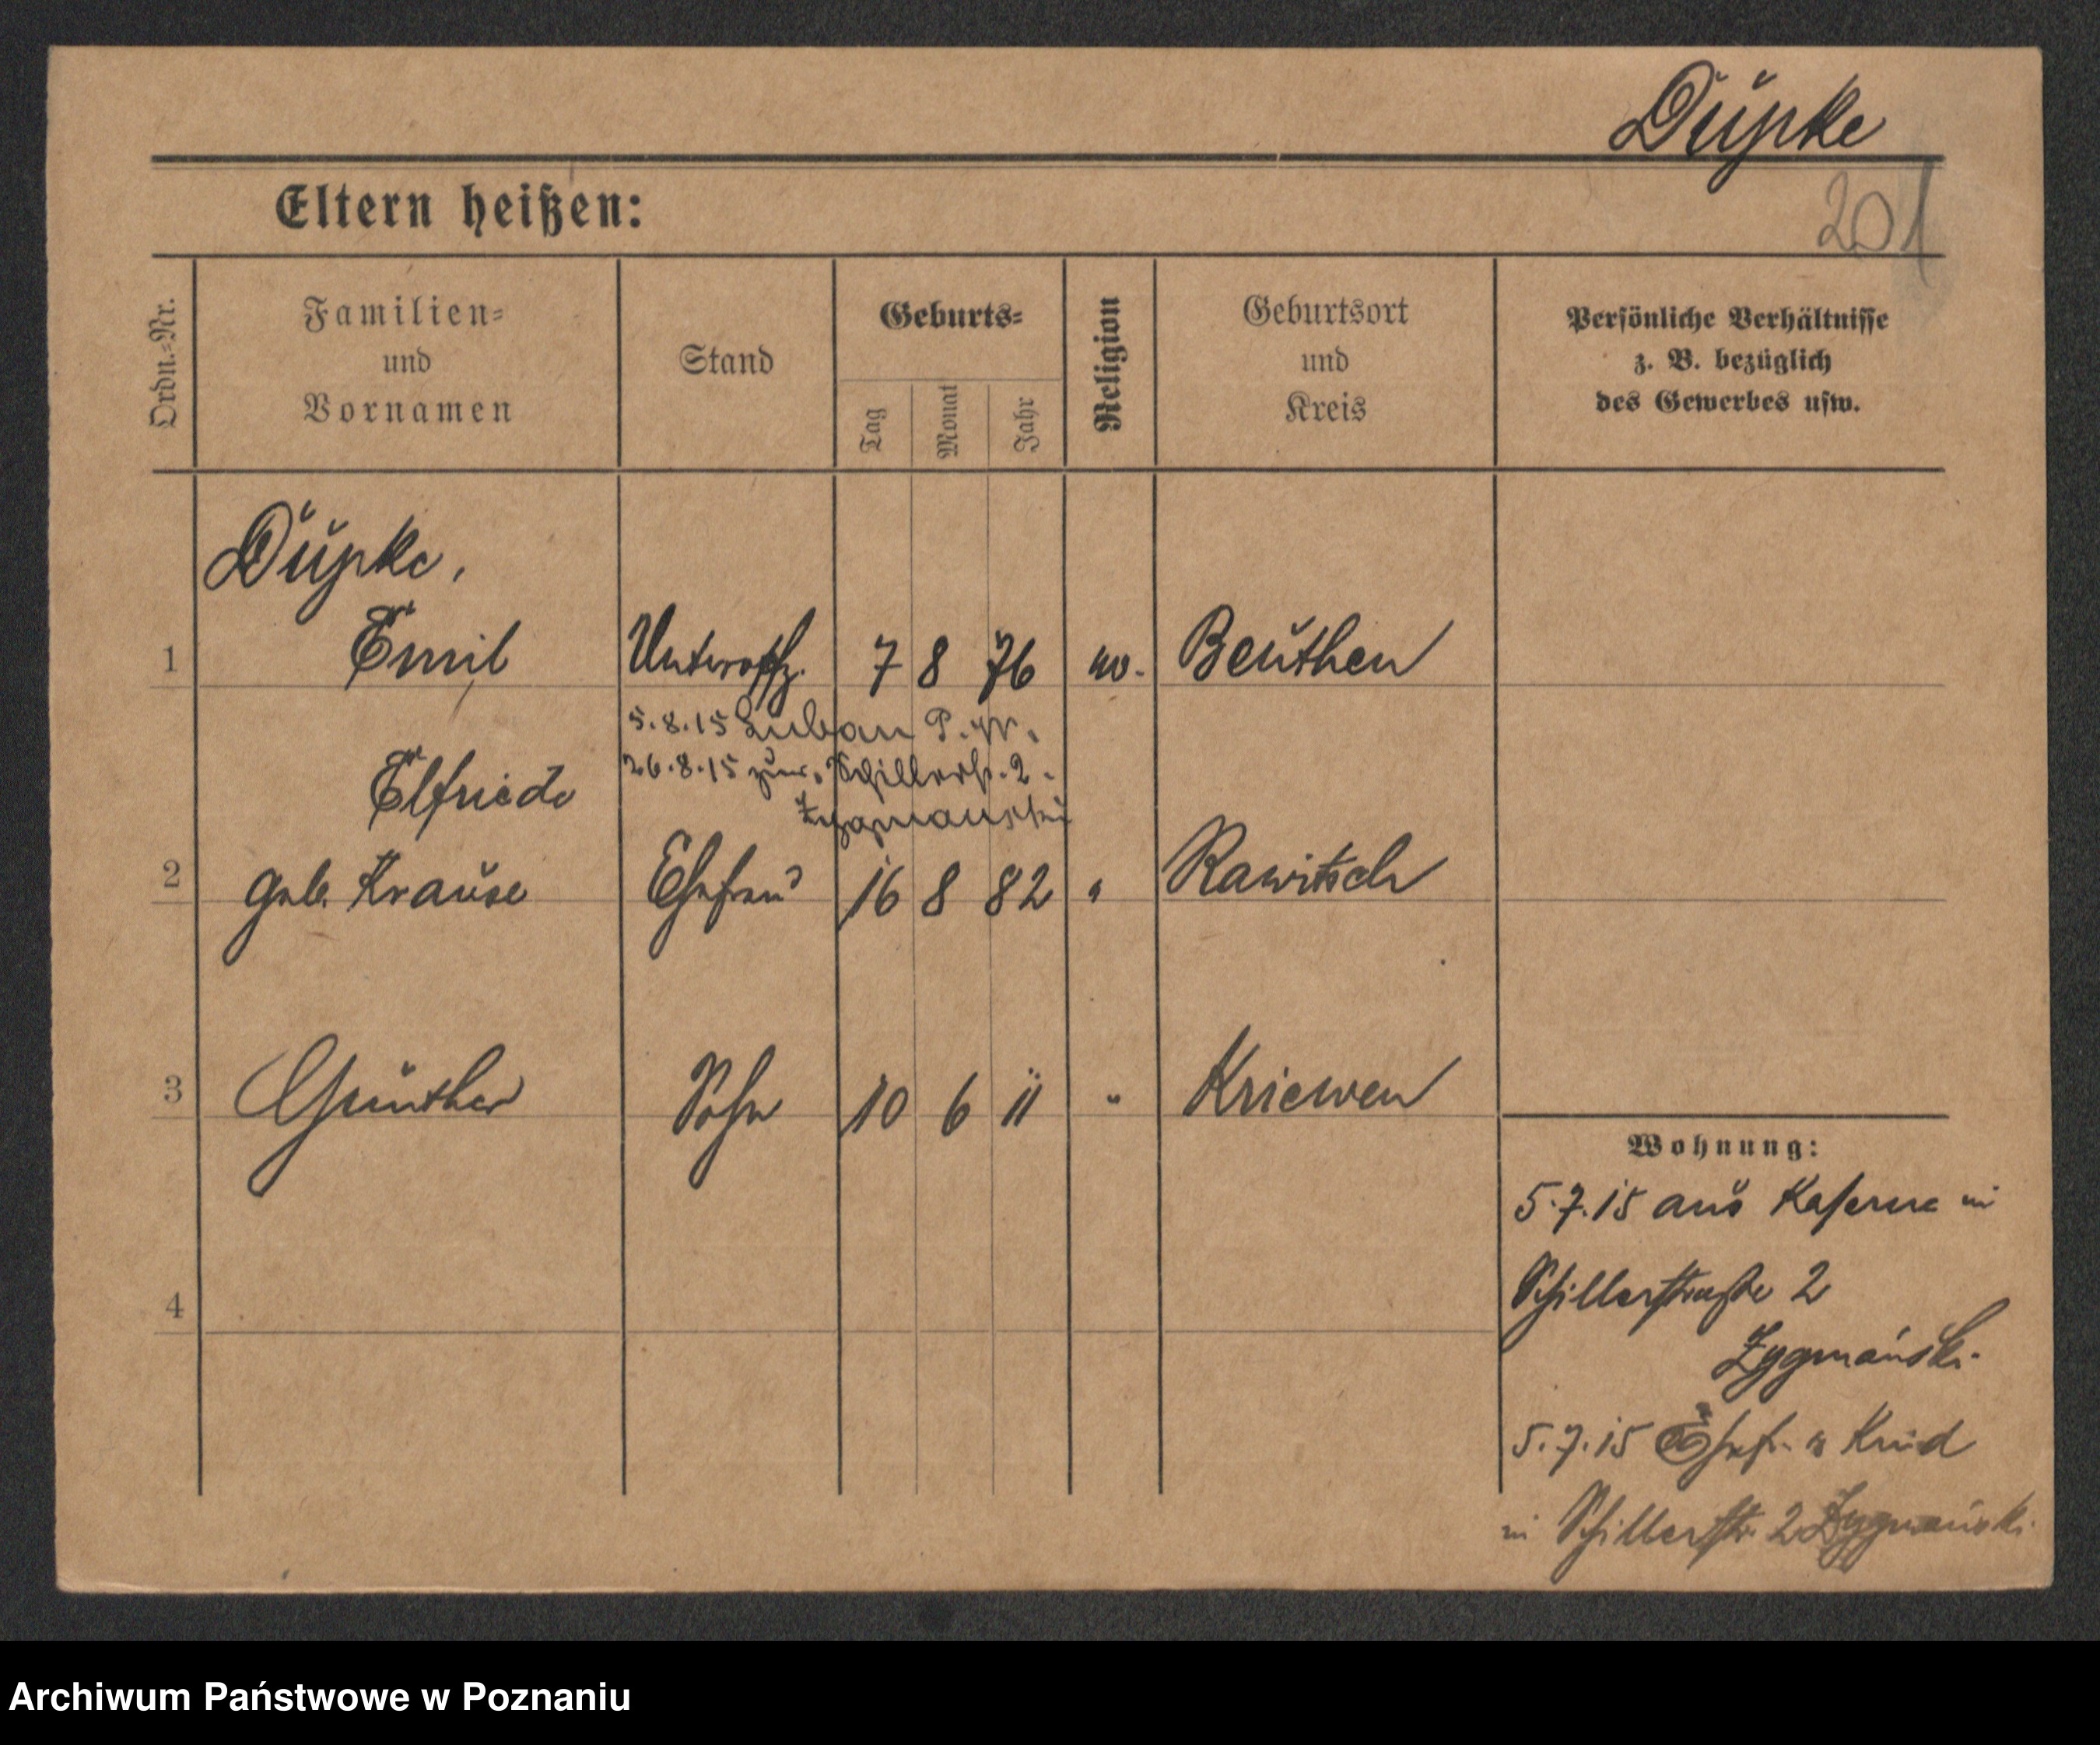 Düpke
201
Eltern heißen:
Ordn.-Nr.
Familien-
und
Vornamen
Stand
Geburts-
Tag
Monat
Jahr
Religion
Geburtsort
und
Kreis
Persönliche Verhältnisse
z. B. bezüglich
des Gewerbes usw.
Düpke,
1 Emil Unteroffz. 7 8 76 ev. Beuthen
5.8.15 Luban P. W.
26.8.15 zur. Schillerstr. 2.
Zygmanski
Elfriede
2 geb. Krause Ehefrau 16 8 82 " Rawitsch
3 Günther Sohn 10 6 11 " Kriewen
Wohnung:
5.7.15 aus Kaserne in
Schillerstraße 2
Zygmański.
4
5.7.15 Ehefr. u Kind
in Schillerstr. 2 Zygmański.
Archiwum Państwowe w Poznaniu